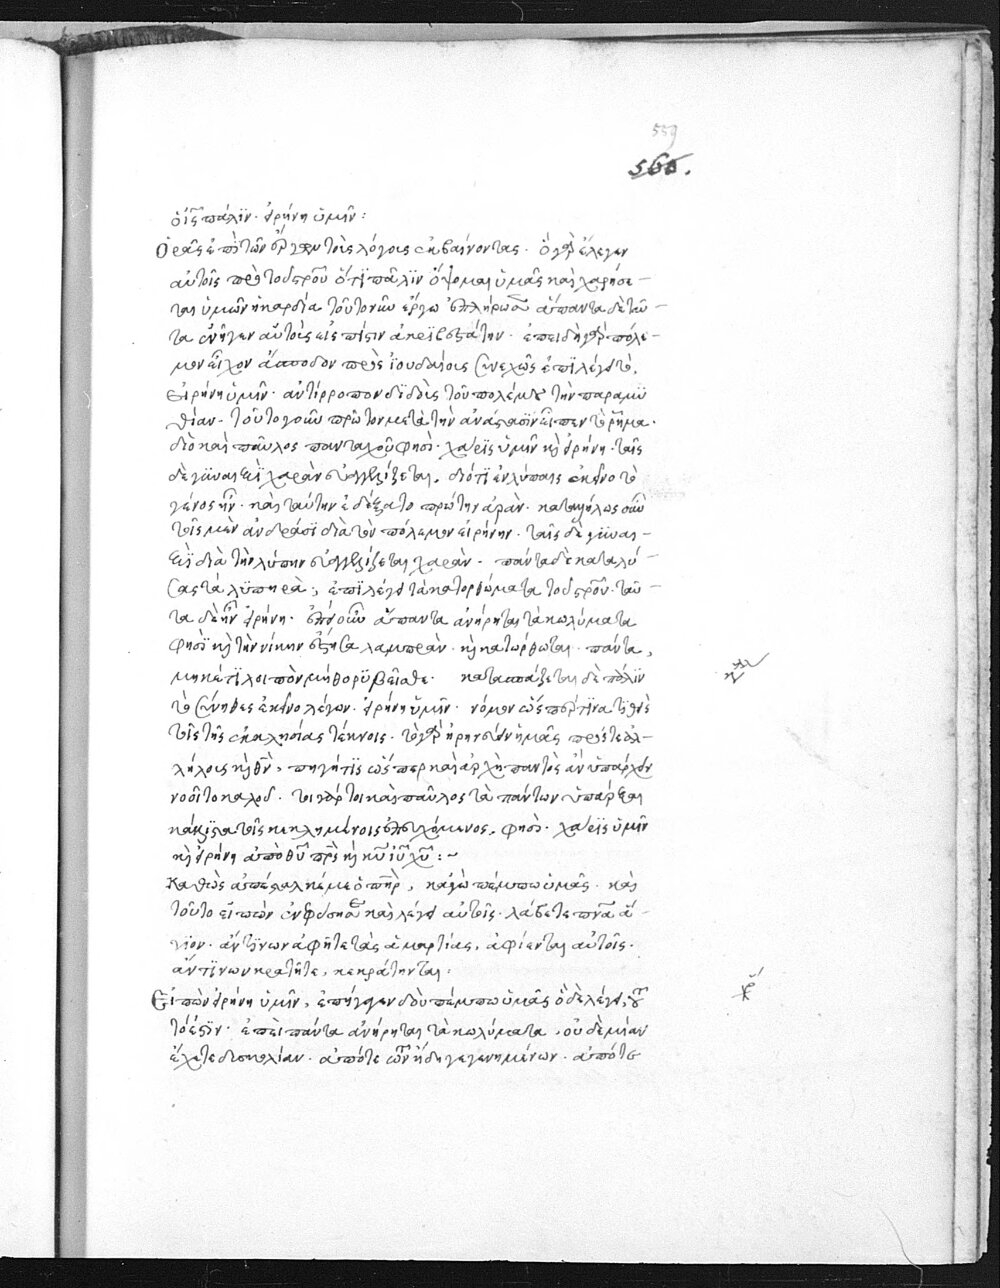 559
566.
ὁ ἰς πάλιν. εἰρήνη ὑμῖν:
Ὁρᾶς ἐπὶ τῶν ἔργων τοὺς λόγους ἐκβαίνοντας. ὃ γὰρ ἔλεγεν
αὐτοῖς πρὸ τοῦ σροῦ ὅτι πάλιν ὄψομαι ὑμᾶς καὶ χαρήσε-
ται ὑμῶν ἡ καρδία τοῦτο νῦν ἔργω ἐπλήρωσ ἅπαντα δὲ ταῦ-
τα ἐνῆγεν αὐτοὺς εἰς πίστιν ἀκριβεστάτην. ἐπειδὴ γὰρ πόλε-
μον εἶχον ἄσποδον πρὸς ἰουδαίους συνεχῶς ἐπιλέγει τὸ,
εἰρήνη ὑμῖν. ἀντίρροπον διδοὺς τοῦ πολέμου τὴν παραμυ
θίαν. τοῦτο γοῦν πρῶτον μετὰ τὴν ἀνάστασιν εἶπεν τὸ ῥῆμα.
διὸ καὶ παῦλος πανταχοῦ φησὶ. χάρις ὑμῖν κὶ εἰρήνη. ταῖς
δὲ γυναιξὶ χαρὰν εὐαγγελίζεται, διότι ἐν λύπαις ἐκεῖνο τὸ
γένος ἦν. καὶ ταύτην ἐδέξατο πρώτην ἀρὰν. καταλλήλως οὖν
τοῖς μὲν ἀνδράσι διὰ τὸν πόλεμον εἰρήνην. ταῖς δὲ γυναι-
ξὶ διὰ τὴν λύπην εὐαγγελίζεται χαρὰν. πάντα δὲ καταλύ-
σας τὰ λυπηρὰ, ἐπιλέγει τὰ κατορθώματα τοῦ σροῦ. ταῦ-
τα δὲ ἦν εἰρήνη. ἐπεὶ οὖν ἅπαντα ἀνήρηται τὰ κωλύματα
φησὶ κὶ τὴν νίκην ἔστησα λαμπρὰν. κὶ κατώρθωται πάντα,
μηκέτι λοιπὸν μὴ θορυβεῖσθε. κατασπάζεται δὲ πάλιν
τὸ σύνηθες ἐκεῖνο λέγων. εἰρήνη ὑμῖν. νόμον ὥσπερ τινα τιθεὶς
τοῖς τῆς ἐκκλησίας τέκνοις. τὸ γὰρ εἰρηνεύειν ἡμᾶς πρός τε ἀλ-
λήλους κὶ θν, πηγή τις ὥσπερ καὶ ἀρχὴ παντὸς ἂν ὑπάρχον
νοοῖτο καλοῦ. τοιγάρτοι καὶ παῦλος τὰ πάντων ὑπάρξαι
κάλλιστα τοῖς κεκλημένοις ἐπευχόμενος, φησὶ. χάρις ὑμῖν
κὶ εἰρήνη ἀπὸ θυ πρς κὶ κυ ιυ χυ:~
Καθὼς ἀπέσταλκέ με ὁ πηρ, κἀγὼ πέμπω ὑμᾶς. καὶ
τοῦτο εἰπὼν ἐνφύσησε καὶ λέγει αὐτοῖς. λάβετε πνα ἅ-
γιον. ἄν τινων ἀφῆτε τὰς ἁμαρτίας, ἀφίενται αὐτοῖς.
ἄν τινων κρατῆτε, κεκράτηνται:
Εἰπὼν εἰρήνη ὑμῖν, ἐπήγαγεν ἰδοὺ πέμπω ὑμᾶς ὃ δὲ λέγει, τοῦ
τό ἐστιν. ἐπεὶ πάντα ἀνήρηται τὰ κωλύματα, οὐδὲ μίαν
ἔχετε δυσκολίαν. ἀπό τε τῶν ἤδη γεγενημένων. ἀπό τε